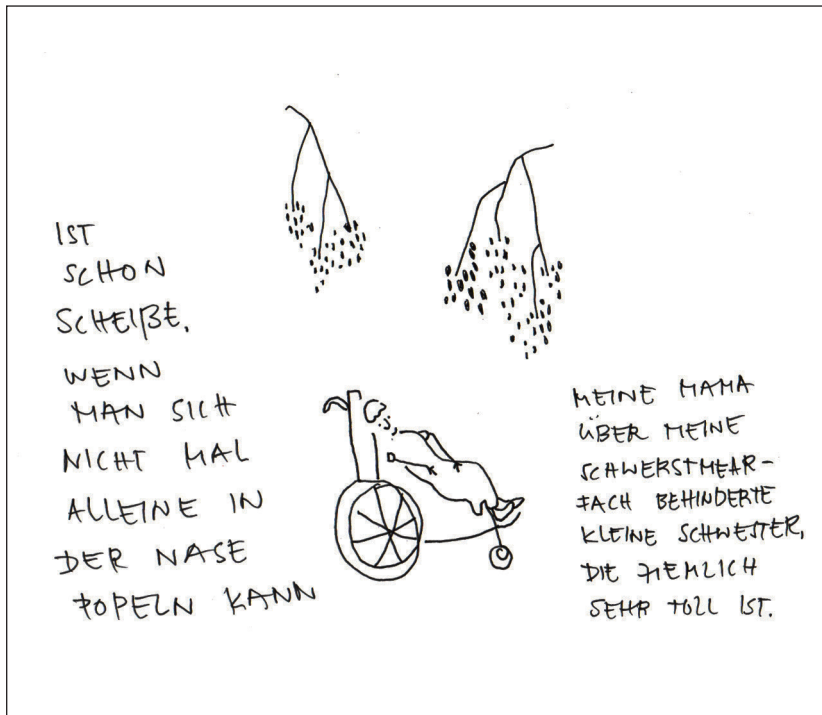 IST
SCHON
SCHEIßE,
WENN
MAN SICH
NICHT MAL
ALLEINE IN
DER NASE
POPELN KANN
MEINE MAMA
ÜBER MEINE
SCHWERSTMEHR-
FACH BEHINDERTE
KLEINE SCHWESTER,
DIE ZIEMLICH
SEHR TOLL IST.